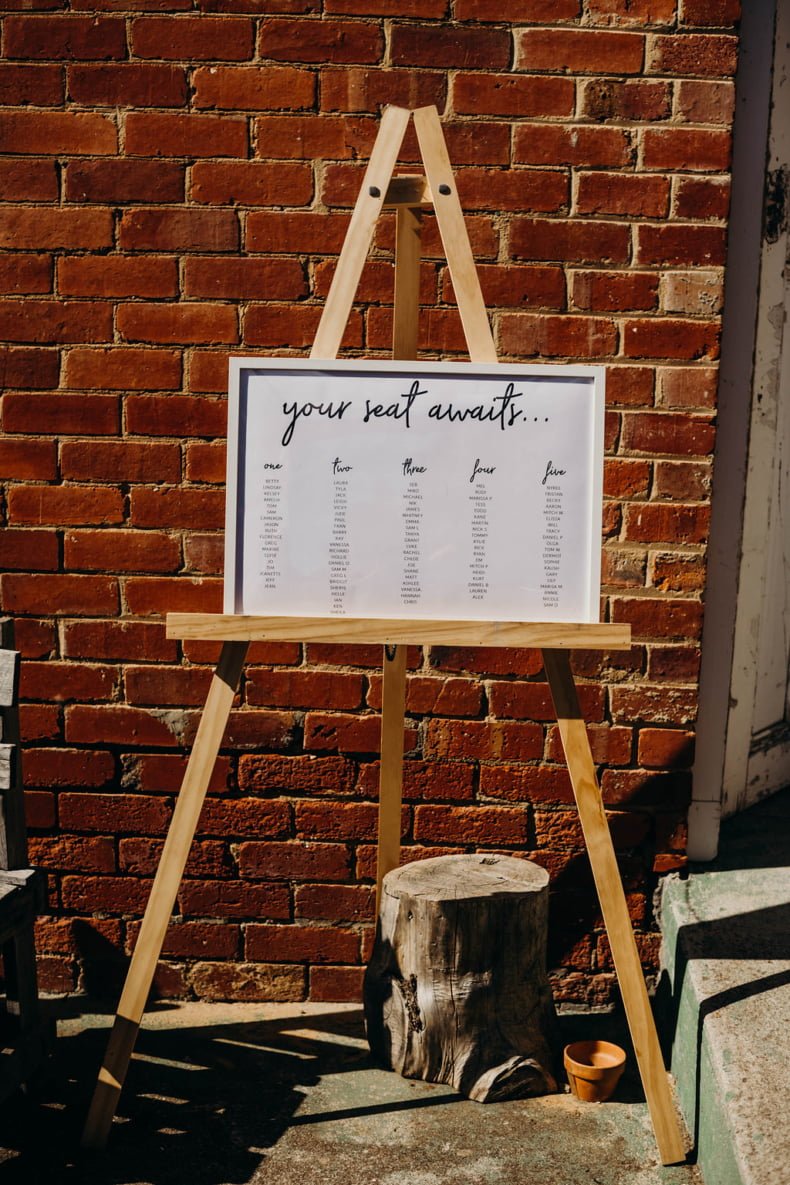 your seat awaits...
one
BETTY
LINDSAY
KELSEY
AMELIA
TOM
SAM
CAMERON
JASON
RUTH
FLORENCE
GREG
MAXINE
CLYDE
JO
TIM
JEANETTE
JEFF
JEAN
two
LAURA
TYLA
JACK
LEIGH
VICKY
JUDE
PAUL
FRAN
BARRY
RAY
VANESSA
RICHARD
HOLLIE
DANIEL O
SAM M
GREG L
BRIDILLY
SHERYL
HELLE
IAN
KEN
SHEILA
three
SEB
MIKO
MICHAEL
NIK
JAMES
WHITNEY
EMMA
SAM L
TANYA
GRANT
LUKE
RACHEL
CHLOE
JOE
SHANE
MATT
ASHLEE
VANESSA M
HANNAH
CHRIS
four
MEL
RUDY
MARISSA P
TESS
TODD
KANE
MARTIN
RICK S
TOMMY
KYLIE
RICK
RYAN
EM
MITCH P
HEIDI
KURT
DANIEL B
LAUREN
ALEX
five
NYREE
TRISTAN
BECKY
AARON
MITCH W
ELISSA
WILL
TRACY
DANIEL P
OLGA
TOM W
DERMOT
SOPHIE
KALISH
GARY
LILY
MARISA M
ANNIE
NICOLE
SAM D